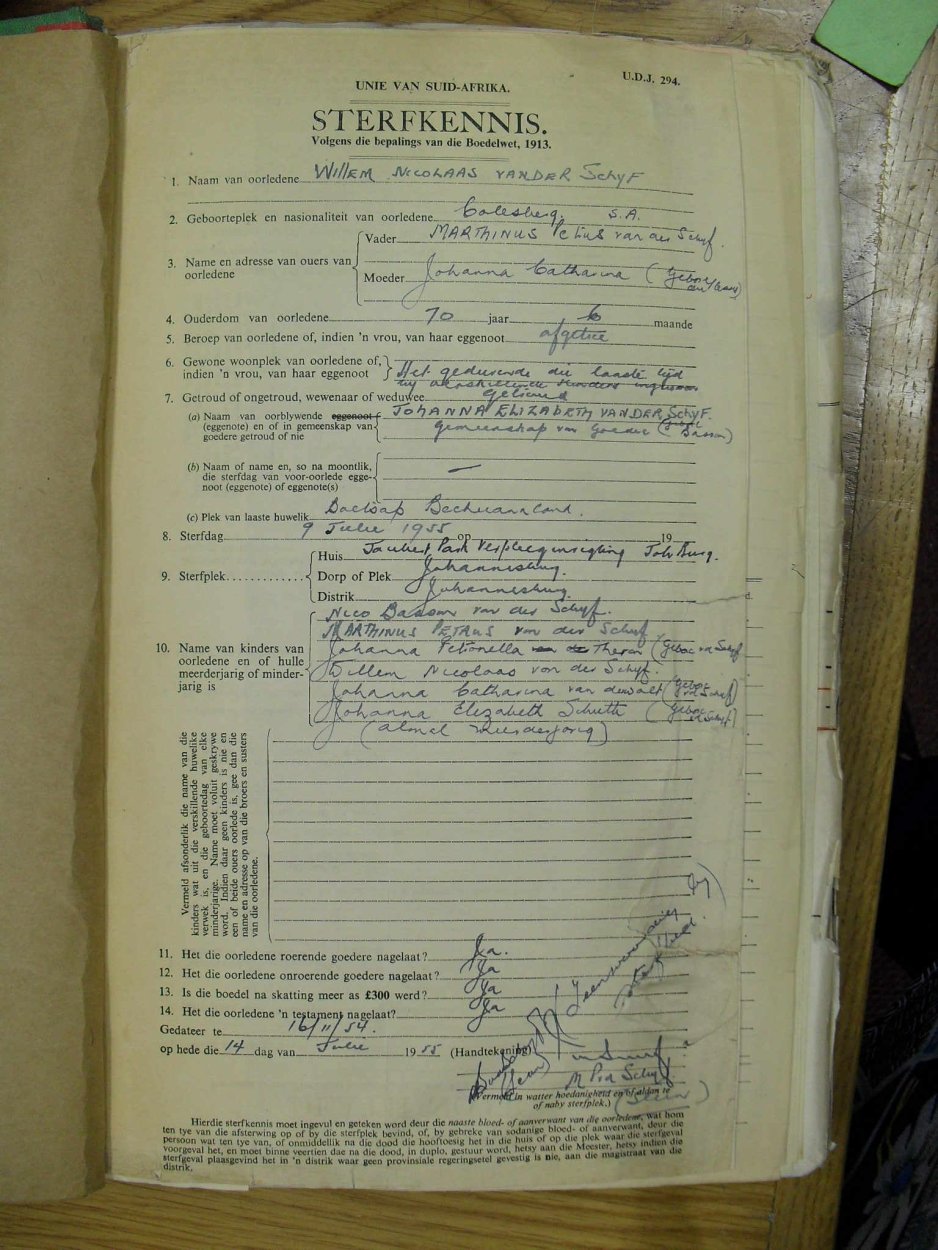 U.D.J. 294.
UNIE VAN SUID-AFRIKA.
STERFKENNIS.
Volgens die bepalings van die Boedelwet, 1913.
1. Naam van oorledene Willem Nicolaas van der Schyf
2. Geboorteplek en nasionaliteit van oorledene Colesberg. S.A.
3. Name en adresse van ouers van oorledene
Vader Marthinus Petrus van der Schyf.
Moeder Johanna Catharina (Gebore
4. Ouderdom van oorledene 70 jaar 6 maande
5. Beroep van oorledene of, indien 'n vrou, van haar eggenoot afgetree
6. Gewone woonplek van oorledene of,
indien 'n vrou, van haar eggenoot
Het gedurende die laaste tyd
by verskillende kinders ingewoon
7. Getroud of ongetroud, wewenaar of weduwee Getroud
(a) Naam van oorblywende eggenoot
(eggenote) en of in gemeenskap van
goedere getroud of nie
Johanna Elizabeth van der Schyf.
gemeenskap van Goedere (gebore Basson)
(b) Naam of name en, so na moontlik,
die sterfdag van voor-oorlede egge-
noot (eggenote) of eggenote(s)
—
(c) Plek van laaste huwelik Bechuanaland.
8. Sterfdag 9 Julie 1955 op 19
9. Sterfplek
Huis Joubert Park Verpleeginrigting Joh Burg.
Dorp of Plek Johannesburg.
Distrik Johannesburg.
10. Name van kinders van
oorledene en of hulle
meerderjarig of minder-
jarig is
Nico Basson van der Schyf.
Marthinus Petrus van der Schyf
Johanna Petronella Theron (Gebore vd Schyf
Willem Nicolaas van der Schyf
Johanna Catharina van der Walt (gebore vd Schyf)
Johanna Elizabeth Schutte (gebore vd Schyf)
(almal meerderjarig)
Vermeld afsonderlik die name van die
kinders wat uit die verskillende huwelike
verwek is, en die geboortedag van elke
minderjarige. Name moet voluit geskrywe
word. Indien daar geen kinders is nie en
een of beide ouers oorlede is, gee dan die
name en adresse op van die broers en susters
van die oorledene.
11. Het die oorledene roerende goedere nagelaat? Ja.
12. Het die oorledene onroerende goedere nagelaat? Ja
13. Is die boedel na skatting meer as £300 werd? Ja
14. Het die oorledene 'n testament nagelaat? Ja
Gedateer te 16/11/54.
op hede die 14 dag van Julie 1955 (Handtekening)
M P vd Schyf.
(Seun)
(Vermeld in watter hoedanigheid en of aldan te
of naby sterfplek.)
Hierdie sterfkennis moet ingevul en geteken word deur die naaste bloed- of aanverwant van die oorledene, wat hom
ten tye van die afsterwing op of by die sterfplek bevind, of, by gebreke van sodanige bloed- of aanverwant, deur die
persoon wat ten tye van, of onmiddellik na die dood die hooftoesig het in die huis of op die plek waar die sterfgeval
voorgeval het, en moet binne veertien dae na die dood, in duplo, gestuur word, hetsy aan die Meester, hetsy indien die
sterfgeval plaasgevind het in 'n distrik waar geen provinsiale regeringsetel gevestig is nie, aan die magistraat van die
distrik.